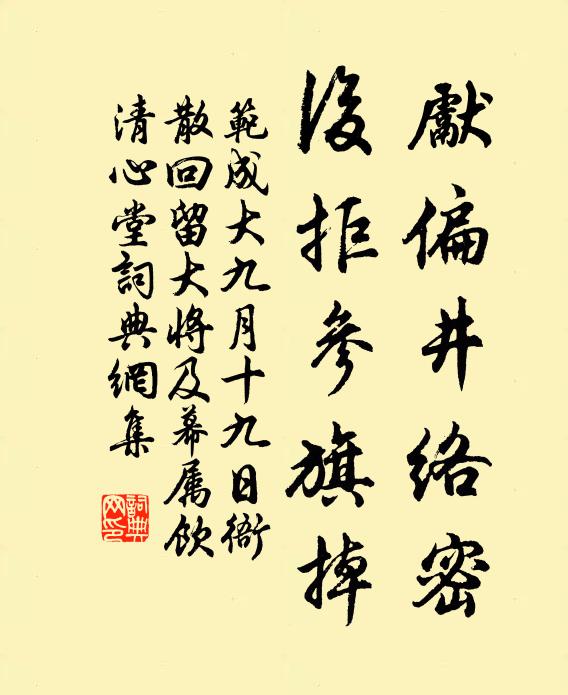 獻偏井絡密
後拒參旗掉
範成大九月十九日衙
散回留大將及幕属飲
清心堂詞典網集
詞典网印